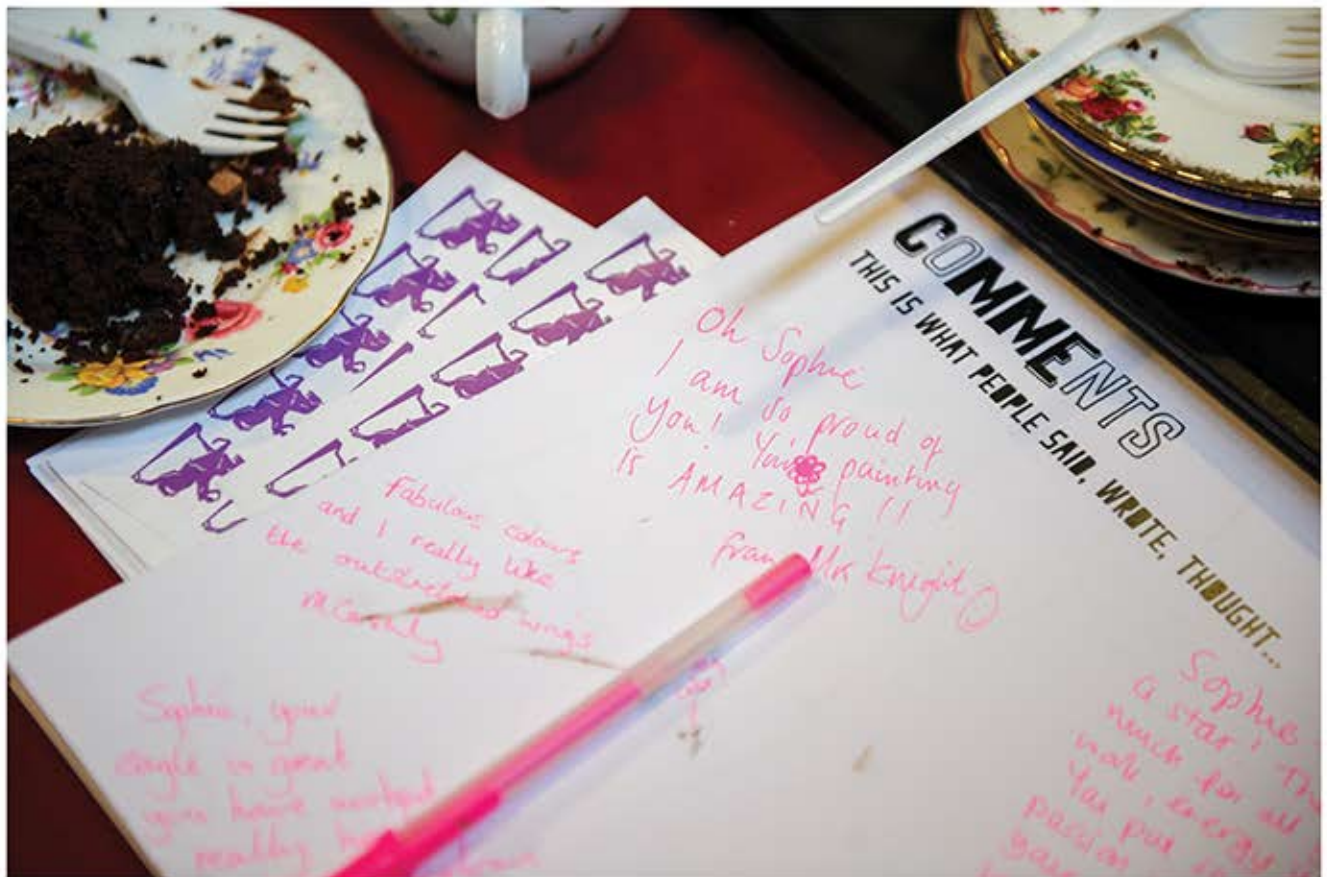 COMMENTS
THIS IS WHAT PEOPLE SAID, WROTE, THOUGHT...
Oh Sophie
I am so proud of
you! Your painting
is AMAZING!!
from Mrs Knight
Fabulous colours
and I really like
the outstretched wings
Sophie, your
eagle is great
you have worked
really
Sophie
a star!
much for all
work, energy
You put